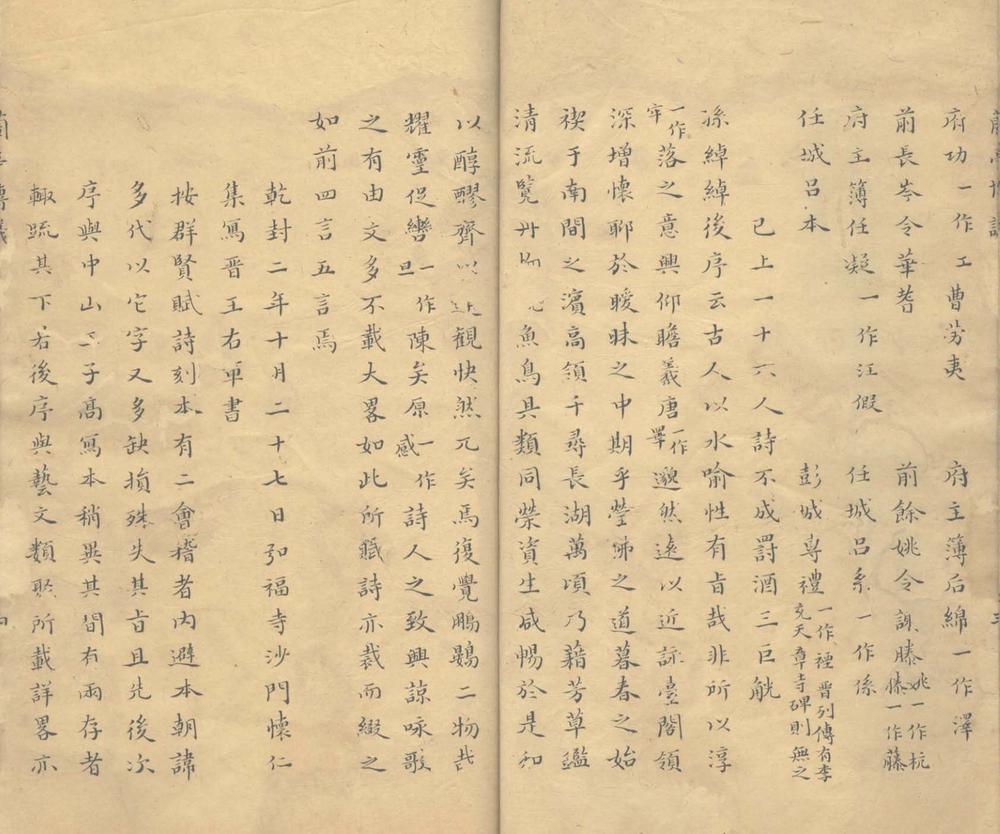 府功一作工曹勞夷　府主簿后綿一作澤
前長岑令華耆　前餘姚令謝滕姚一作杭滕一作藤
府主簿任凝一作汪假　任城吕系一作係
任城吕本　彭城專禮一作禋晉列傳有李充天章寺碑則無之
已上一十六人詩不成罸酒三巨觥
孫綽綽後序云古人以水喻性有旨哉非所以淳
一作牢落之意興仰瞻羲唐一作暉邈然遠以近詠臺閣領
深增懷耶於曖昧之中期乎瑩沸之道暮春之始
禊于南間之濵高領千尋長湖萬頃乃藉芳草鑑
清流覧卉物魚鳥具類同榮資生咸暢於是和
以醇醪齊以達觀快然兀矣焉復覺鵬鷃二物哉
耀靈促轡一作旦陳矣原一作感詩人之致興諒咏歌
之有由文多不載大畧如此所賦詩亦裁而綴之
如前四言五言焉
乾封二年十月二十七日弘福寺沙門懷仁
集寫晋王右軍書
按群賢賦詩刻本有二會稽者内避本朝諱
多代以它字又多缺損殊失其旨且先後次
序與中山王子高寫本稍異其間有兩存者
輙疏其下若後序與藝文類聚所載詳畧亦